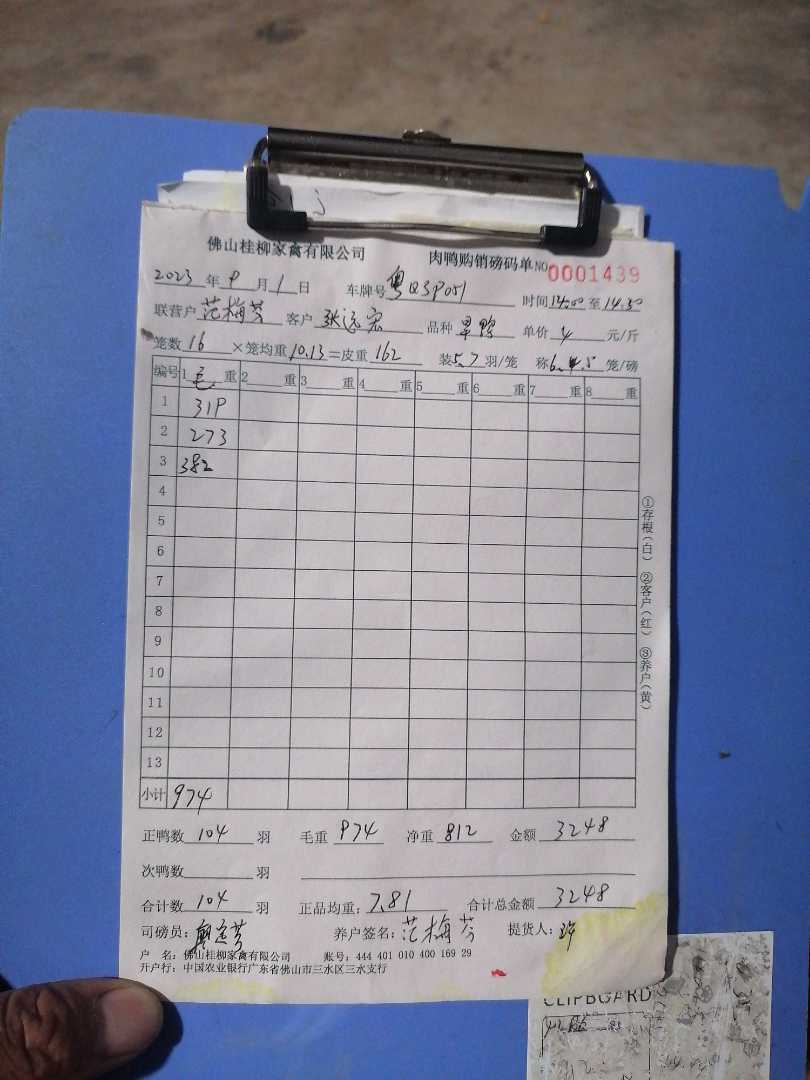 佛山桂柳家禽有限公司 肉鸭购销磅码单 NO 0001439
2023 年 9 月 1 日 车牌号 粤Q3P051 时间 14.00 至 14.30
联营户 范梅芳 客户 张远宏 品种 单价 4 元/斤
笼数 16 ×笼均重 10.13 =皮重 162 装 5、7 羽/笼 称 6、4、5 笼/磅
编号 1 毛 重 2 重 3 重 4 重 5 重 6 重 7 重 8 重
1 319
2 273
3 382
4
5
6
7
8
9
10
11
12
13
小计 974
①存根(白) ②客户(红) ③养户(黄)
正鸭数 104 羽 毛重 974 净重 812 金额 3248
次鸭数 羽
合计数 104 羽 正品均重: 7.81 合计总金额 3248
司磅员: 养户签名: 范梅芳 提货人: 
户 名: 佛山桂柳家禽有限公司 账号: 444 401 010 400 169 29
开户行: 中国农业银行广东省佛山市三水区三水支行
CLIPBOARD